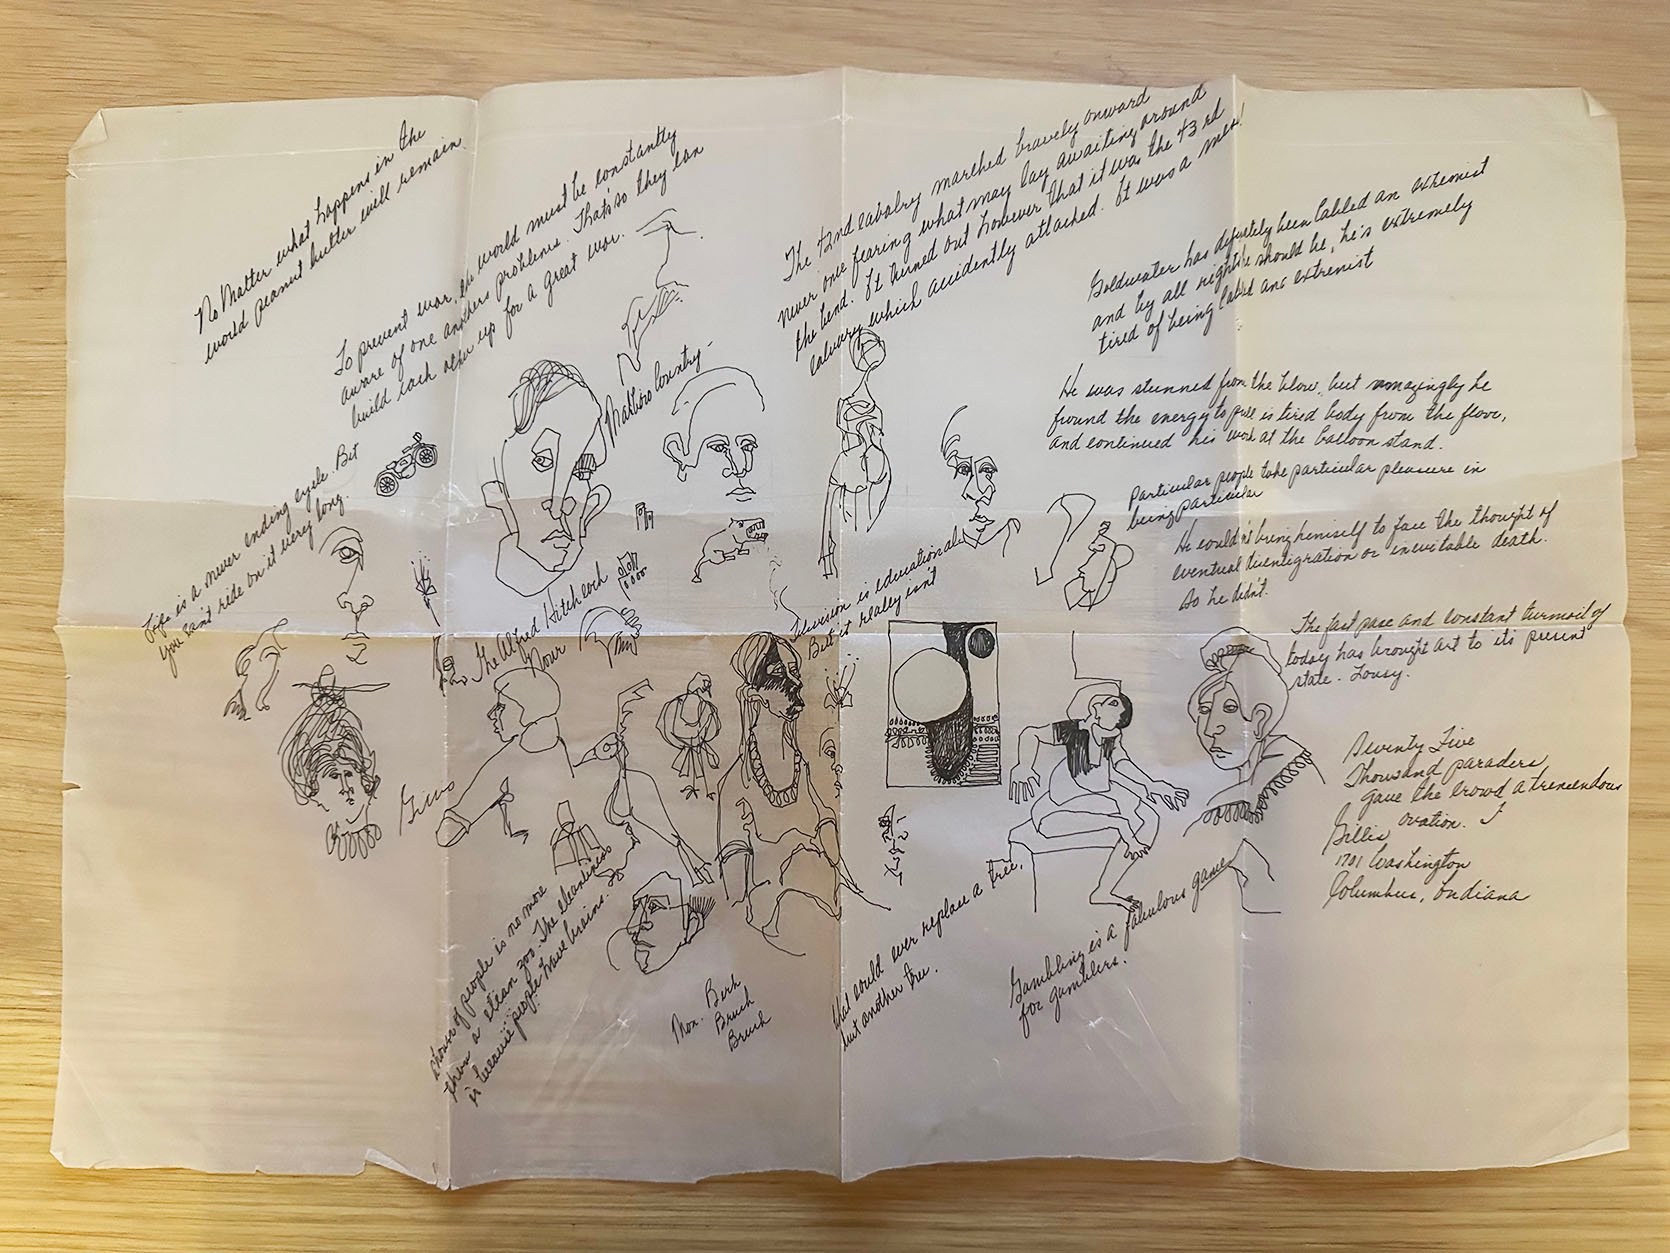 No Matter what happens in the
world peanut butter will remain
To prevent war, the world must be constantly
aware of one anothers problems. That's so they can
build each other up for a great war.
The 42nd cavalry marched bravely onward
never one fearing what may lay awaiting around
the bend. It turned out however that it was the 43rd
calvary which accidently attached. It was a mess!
Goldwater has definetely been labled an extremist
and by all rights he should be, he's extremely
tired of being labled an extremist
He was stunned from the blow, but amazingly he
found the energy to pull is tired body from the floor,
and continued his work at the balloon stand.
Particular people take particular pleasure in
being particular
He couldn't bring himself to face the thought of
eventual disentigration or inevitable death.
So he didn't.
The fast pase and constant turmoil of
today has brought art to its present
state. Lousy.
Seventy Five
Thousand paraders
gave the crowd a tremendous
ovation. J
Gillis
1701 Washington
Columbus, Indiana
Life is a never ending cycle. But
you can't ride on it very long.
Marlboro Country-
The Alfred Hitchcock
Hour
Television is educational.
But it really isn't
a house of people is no more
than a clean zoo. The cleanliness
is because people have brains.
Mon. Bach
Bruch
Bruch
What could ever replace a tree,
but another tree.
Gambling is a fabulous game
for gamblers.